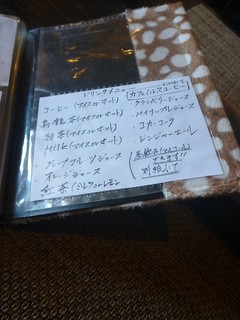 ドリンクメニュー
(カフェインレスコーヒー)
コーヒー(アイスorホット)
烏龍茶(アイスorホット)
緑茶(アイスorホット)
Milk(アイスorホット)
グレープフルーツジュース
オレンジジュース
紅茶(ミルクorレモン
・クランベリージュース
・パイナップルジュース
・コカ・コーラ
・ジンジャーエール
(アルコール)
できます!!
別紙にて